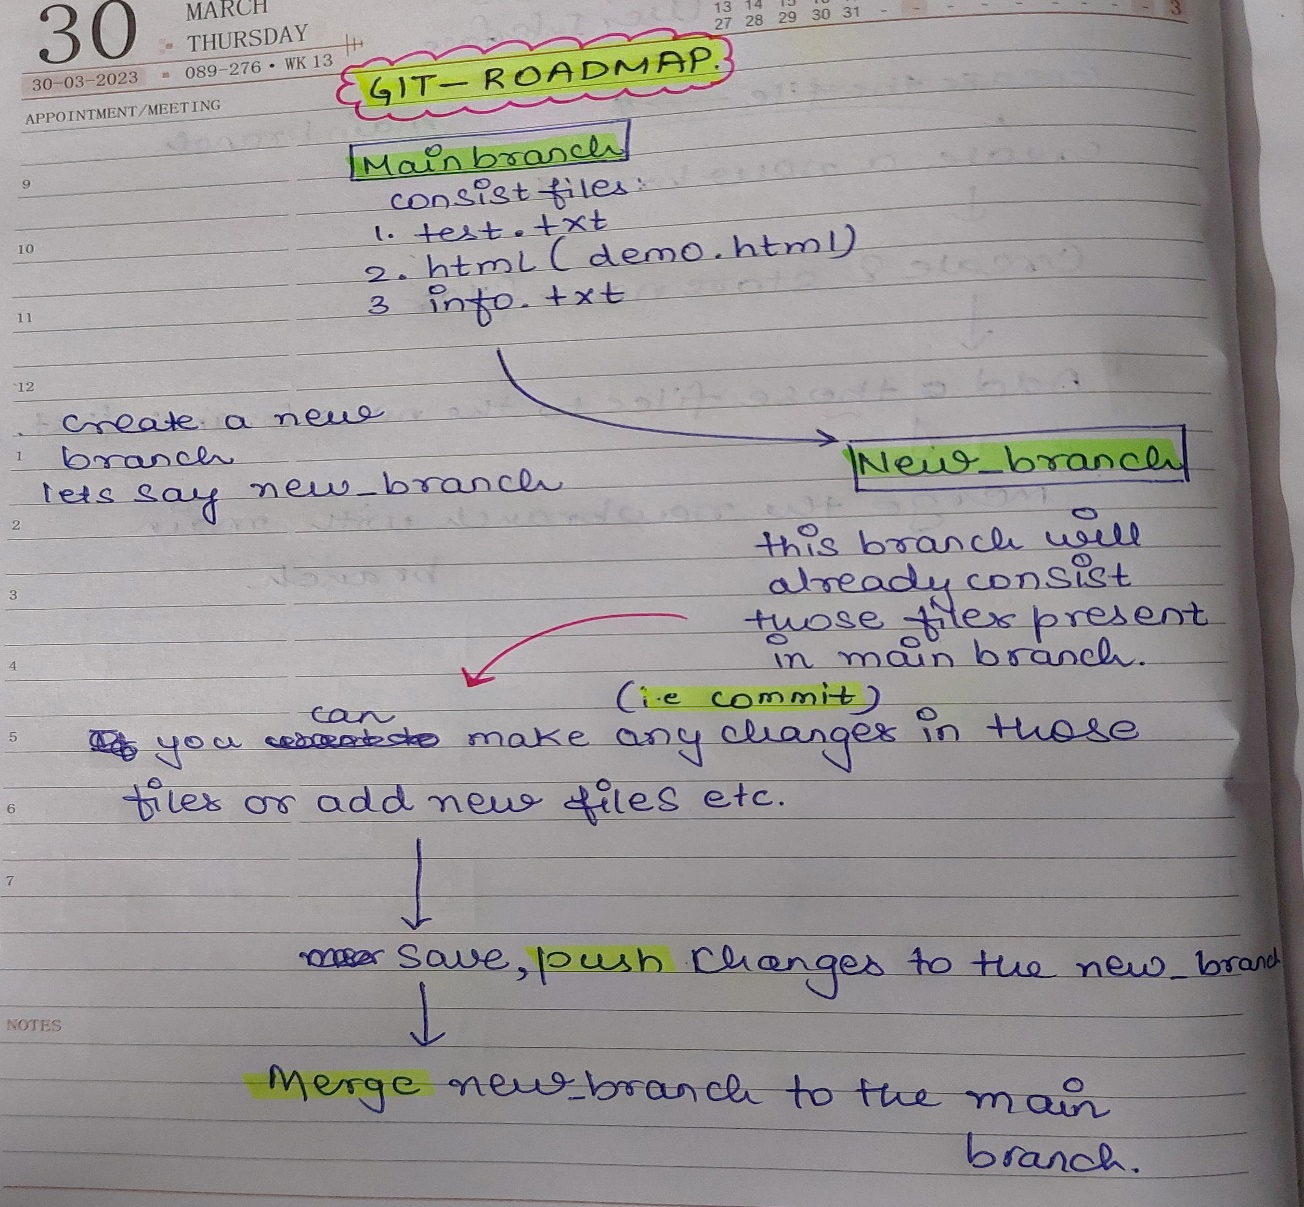 30
MARCH
THURSDAY
30-03-2023
089-276 • WK 13
13 14 15 16
27 28 29 30 31 - - - - - - - - 3
APPOINTMENT/MEETING
GIT-ROADMAP.
Main branch
consist files:
1. test.txt
2. html ( demo.html)
3 info.txt
9
10
11
12
create a new
1 branch
lets say new_branch
New_branch
2
this branch will
already consist
3
those files present
in main branch.
4
(i.e commit)
can
5 you make any changes in those
6 files or add new files etc.
7
save, push changes to the new_branch
NOTES
Merge new_branch to the main
branch.